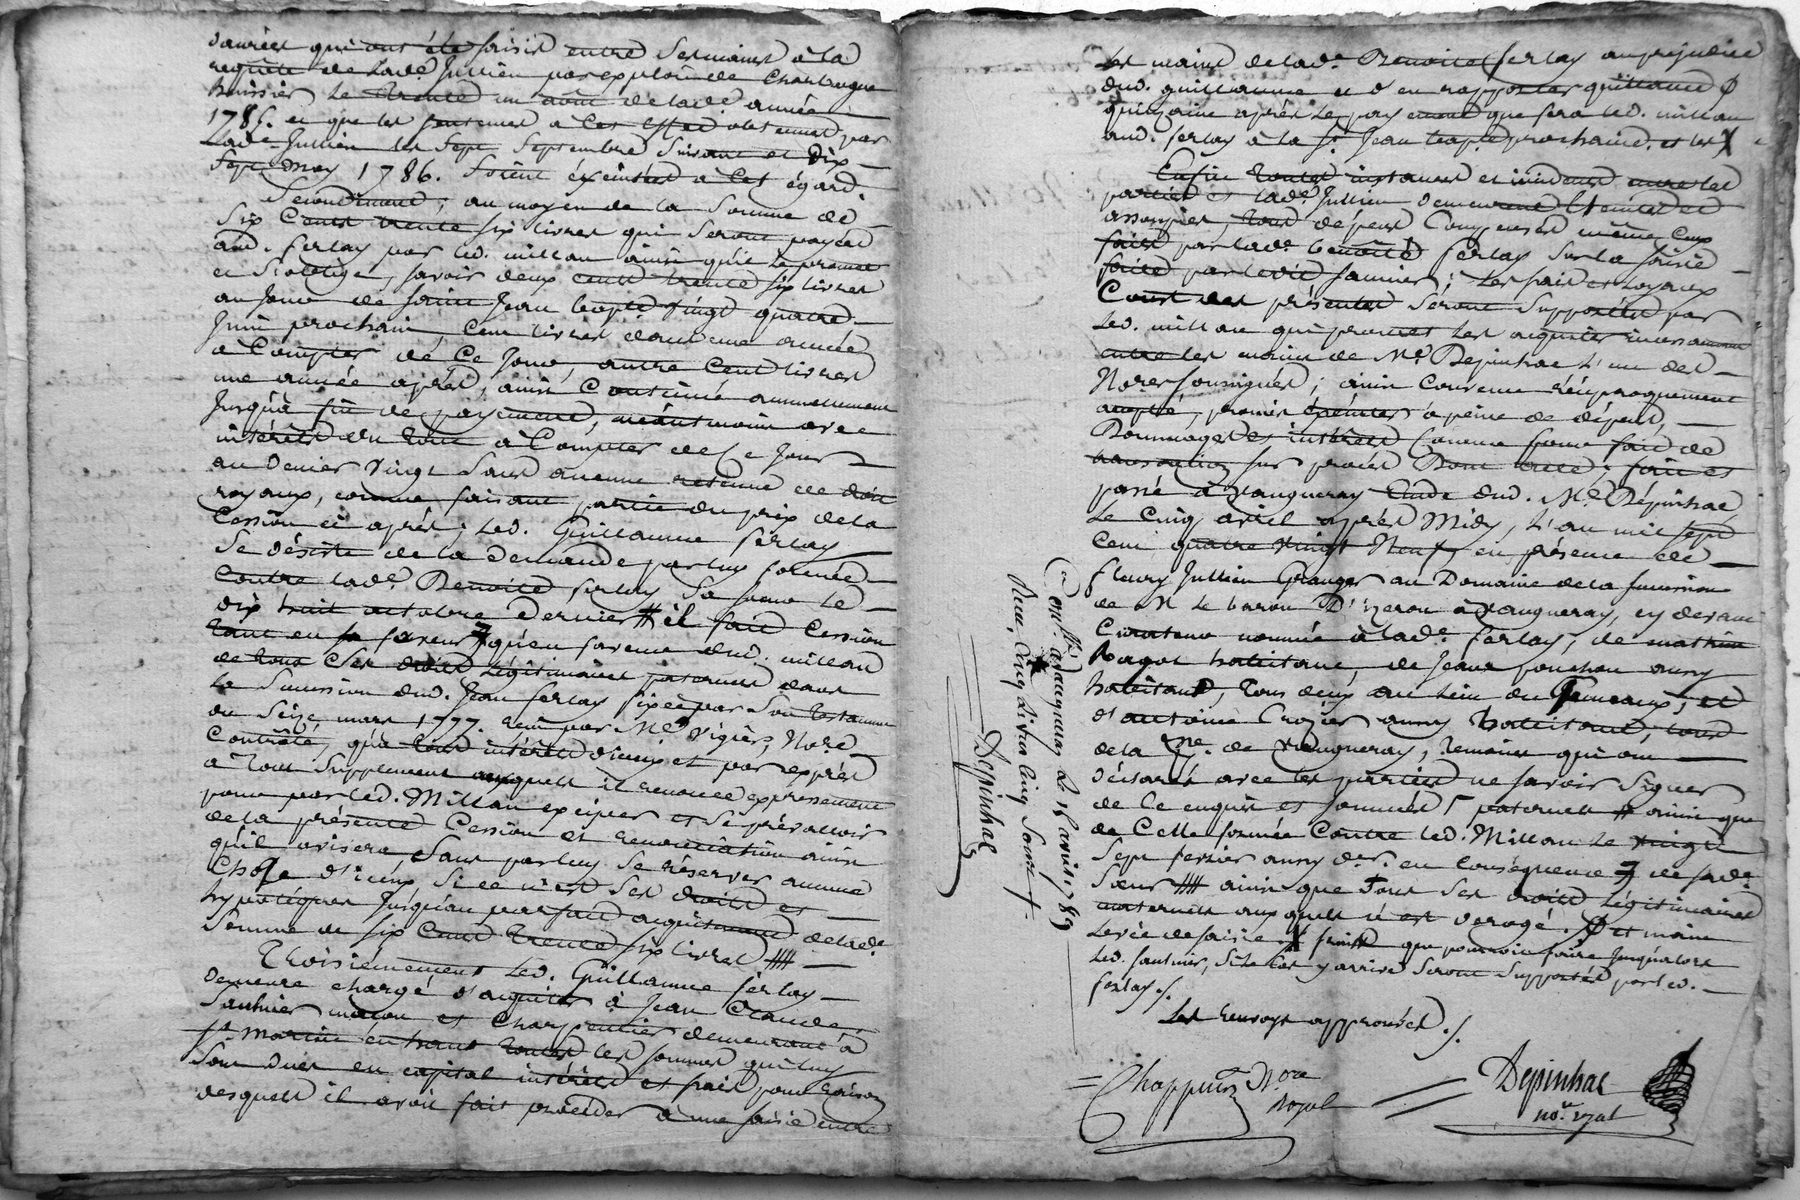 danrées qui ont été saisies entre ses mains à la
requête de lade. Jullien par exploit de
huissier le trente un août de lade. année
1785. et que les sentences à cet effet obtenues par
lade. Jullien les sept septembre suivant et dix
sept may 1786. soient éxécutées à cet égard.
Secondement, au moyen de la somme de
six cents trente six livres qui seront payées
aud. ferlay par led. millau ainsi qu'il le promet
et s'oblige, savoir deux cents trente six livres
au jour de saint Jean baptê vingt quatre
Juin prochain, cent livres dans une année
à compter de ce jour, autre cent livres
une année après, ainsi continué annuellement
jusqu'à fin de payement, néantmoins avec
intérêts du tout à compter de ce jour
au denier vingt sans aucune retenue de droits
royaux, comme faisant partie du prix de la
cession ci après; led. Guillaume ferlay
se désiste de la demande par luy formée
contre lade. Benoite ferlay sa soeur le
dix huit octobre dernier # il fait cession
tant en sa faveur 7 qu'en faveur dud. millau
de tous ses droits légitimaires paternels dans
la succession dud. Jean ferlay fixée par son testament
du seize mars 1777. reçu par Me Vigière, Nore.
Contrôlé, qu'à tous intérêts d'iceux et par exprès
à tout supplément auxquels il renonce expressément
pour par led. Millau exciper et se prévalloir
de la présente cession et renonciation ainsi
qu'il avisera, sans par luy se réserver aucune
chose d'iceux, si ce n'est ses droits et
hypotéques jusqu'au parfait acquitement de lade.
somme de six cents trente six livres ####
Troisiemement led. Guillaume ferlay
demeure chargé d'aquiter à Jean Claude
Saulnier maçon et charpentier demeurant à
st. Martin en haut toutes les sommes qui luy
sont dues en capital intérêts et frais pour raison
desquels il avoit fait procéder à une saisie entre
les mains de lade. Benoite ferlay au préjudice
dud. guillaume et d'en rapporter quittance ϕ
quinzaine après le payement que fera led. millau
aud. ferlay à la st. Jean baptê prochaine. et les X
Enfin toutes instances et incidents entre les
parties et lade. Jullien demeurent éteintes et
assoupies, tous dépens compensés même ceux
faits par lade. benoite ferlay sur la saisie
faite par ledit saunier; les frais et loyaux
Couts des présentes seront supportés par
led. millau qui promet les aquiter incessamment
entre les mains de Me. Depinhac l'un des
Nores soussignés; ainsi convenu réciproquement
accepté, promis éxécuter à peine de dépens,
Dommages et intérêts comme pour fait de
transaction sur procès Dont acte; fait et
passé à Vaugneray Etude dud. Me. Dépinhac
le cinq avril après midy, l'an mil sept
cent quatre vingt neuf en présence de
fleury Jullien Granger au Domaine de la
de M. le baron D'yzeron à Vaugneray, cy devant
Curateur nommé à lade. ferlay, de mathieu
Ragot habitant, de Jean fonchon aussy
habitant, tous deux au lieu du Jumeaux, et
d'antoine Crozier aussy habitant, tous
de la psse. de Vaugneray, témoins qui ont
déclaré avec les parties ne savoir signer
de ce enquis et sommés 7 paternels # ainsi que
de celle formée contre led. Millau le vingt
sept fevrier aussy der. en conséquence 7 de sade.
soeur #### ainsi que tous ses droits légitimaires
maternels auxquels il est dérogé. ϕ et main
levée de saisie X frais que pourroit faire jusqu'alors
led. saulnier, si le cas y arrive seront supportés par led.
ferlay ./.
Les renvoys approuvés ./.
Chappuis Nore
royal
Depinhac
nore. royal
Conllé. à Vaugneray le 15 avril 1789
Reçu cinq livres cinq sous
Depinhac